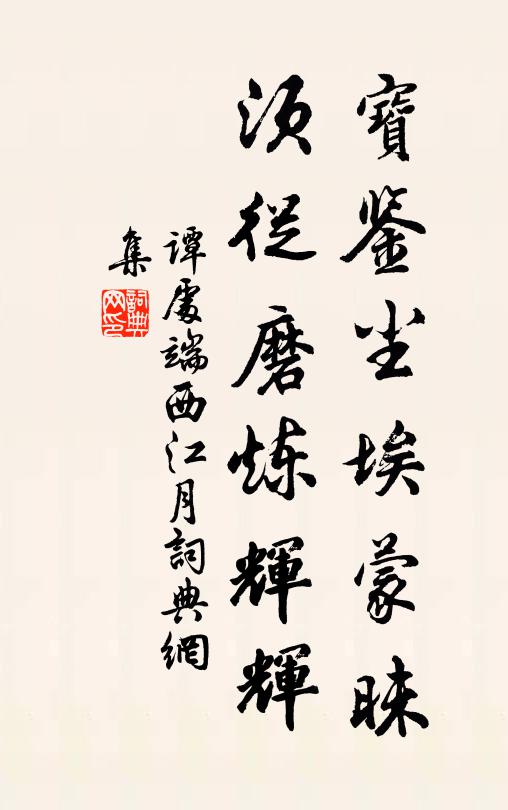 寶鉴尘埃蒙昧
须從磨炼輝輝
谭處端西江月詞典網
集
詞典
网印